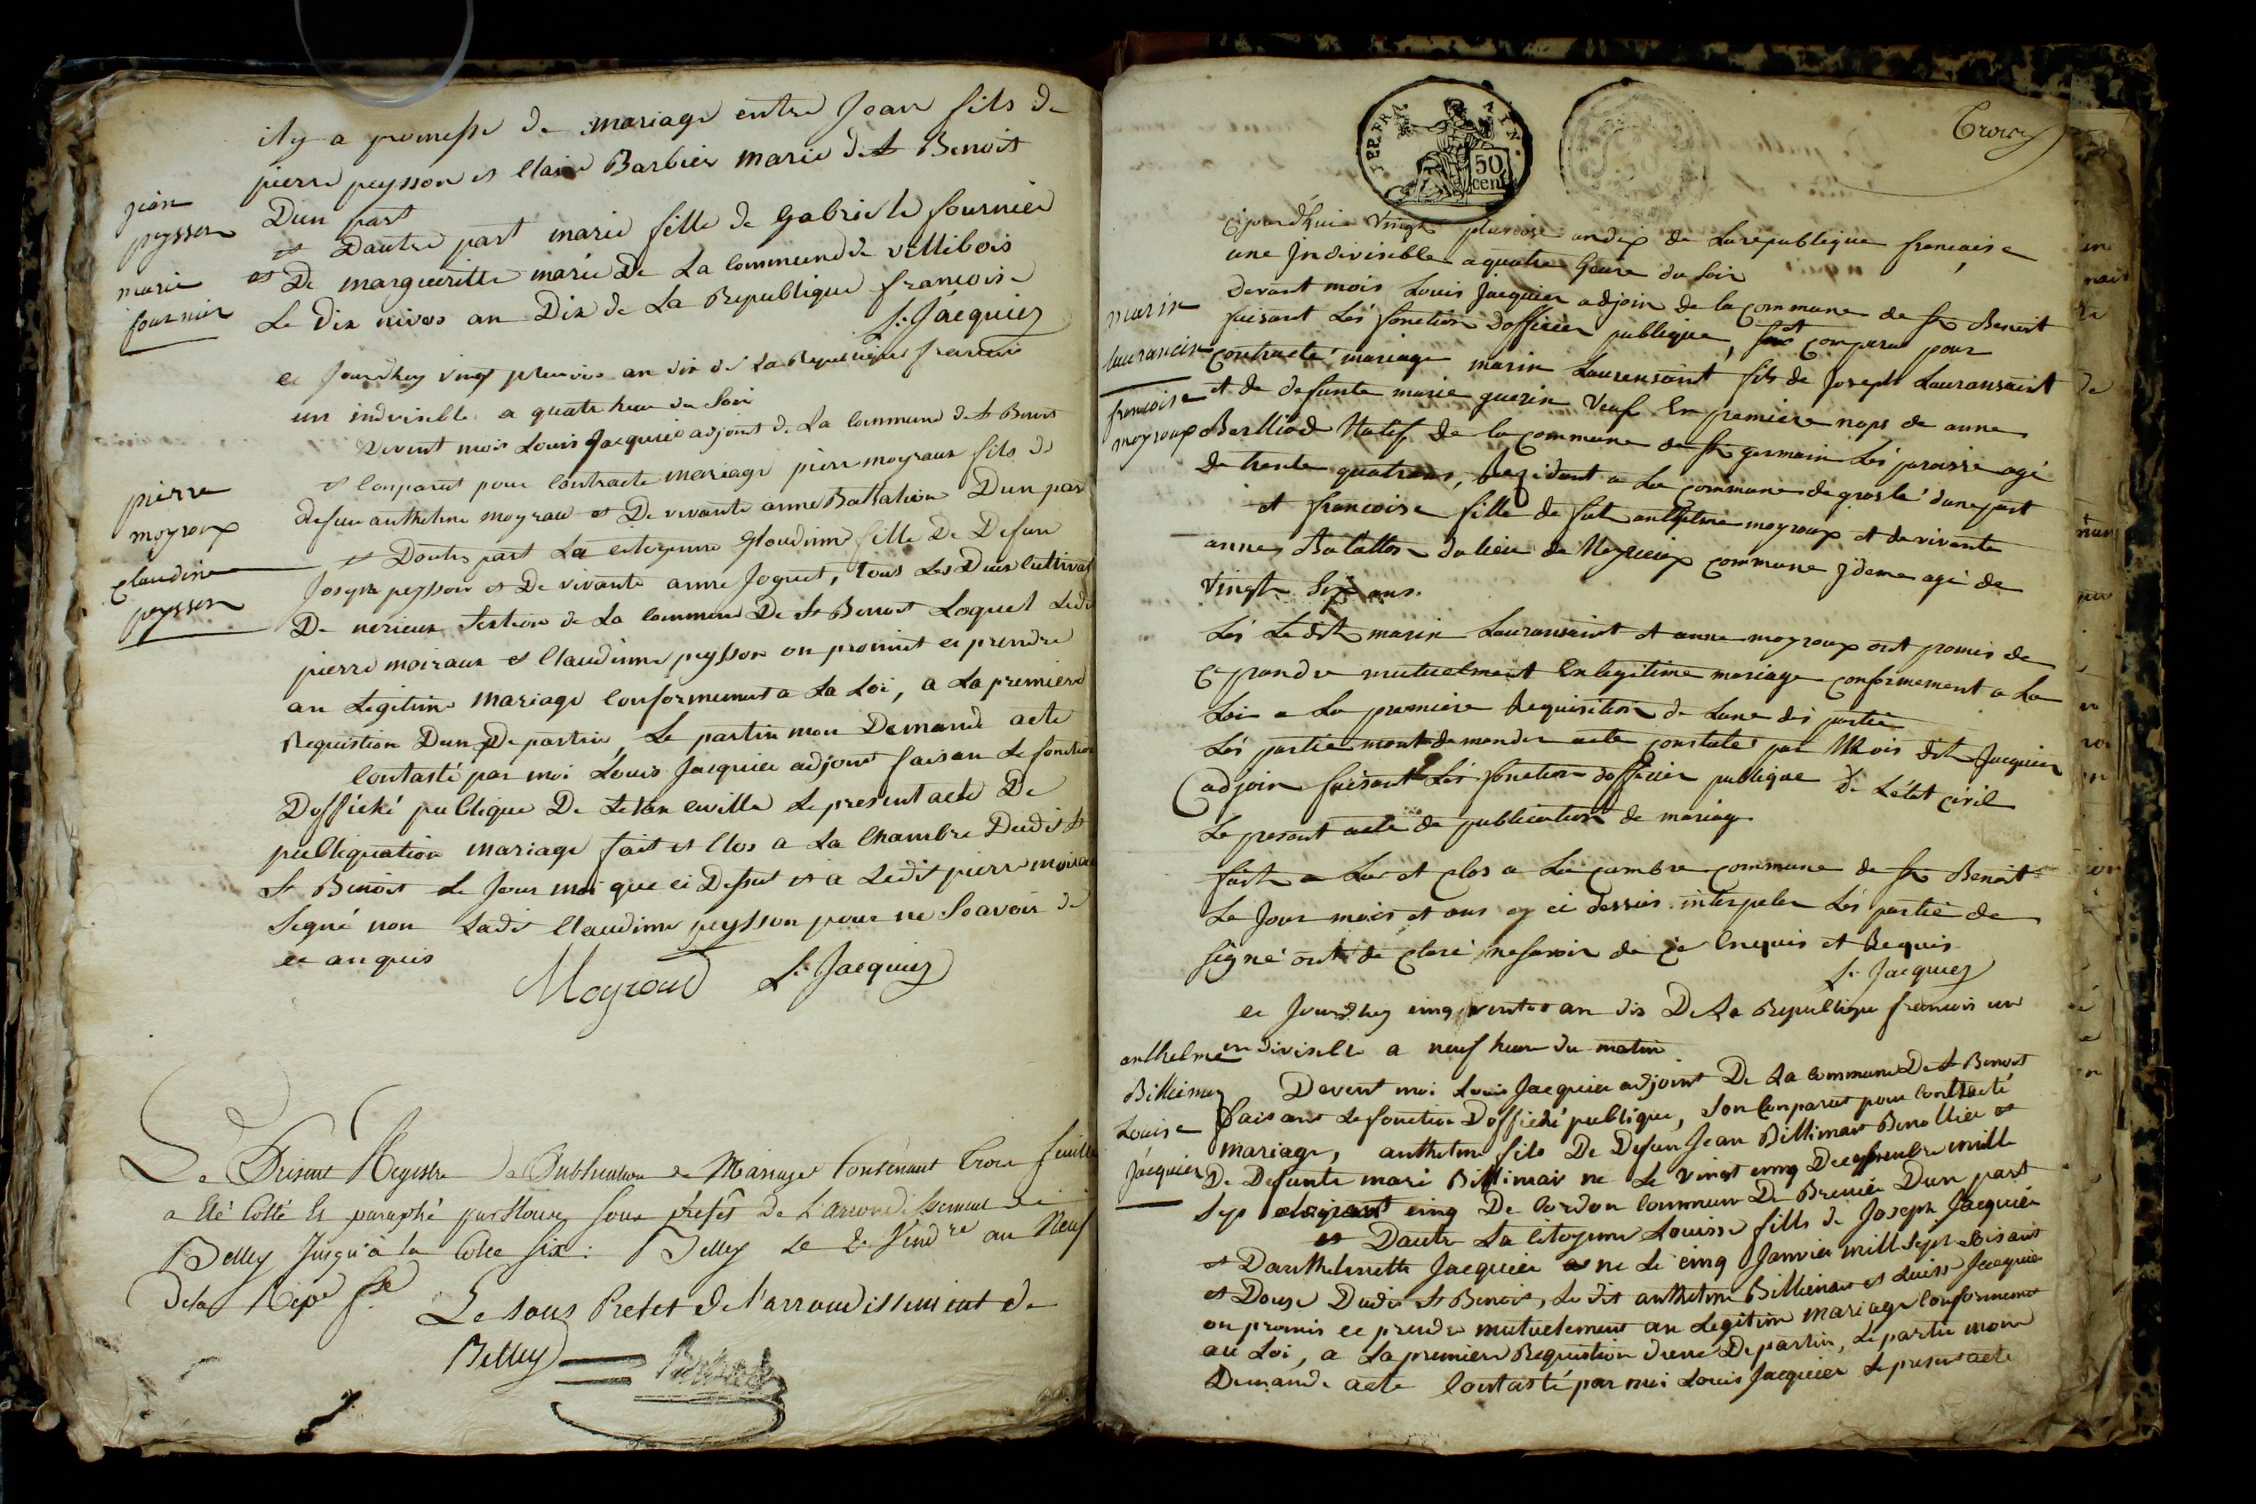 il y a promesse de mariage entre Jean fils de
pierre peysson et Claire Barbier marie de st Benoit
Dun part
et Dautre part marie fille de Gabriele fournier
et De margueritte marie De La Commune de villibois
Le dix nivos an Dix de La Republique francoise
L: Jacquier
jean
peysson
marie
fournier
ce Jourdhuy vingt pluvios an dix de La Republique francoise
un indivisible a quatre heure du Soir
Devent moi Louis Jacquier adjoint de La Commune de st Benoit
et Conparut pour Contracte mariage pierre moyraux fils de
defun anthelme moyraux et De vivante anne Battalion Dun par
et Dautre part La citoyenne Gloudinne fille De Defun
Joseph peysson et De vivante anne Joguet, tous Les Deux Cultivat
De nerieux Section de La Commune De St Benoit Loquel Ledi
pierre moiraux et Claudinne peysson on promit ce prendre
an Legitime mariage Conformement a La Loi, a La premiere
Requistion Dun De partie, Le partie mon Demande acte
Contasté par moi Louis Jacquier adjoint faisan Le fonction
Doffiché publique De Letan civille Le present acte De
publiquation mariage fait et Clos a La Chambre Dudit St
St Benoit Le Jour moi que ci Dessut et a Ledit pierre moiraux
Signé non Ladit Claudinne peysson pour ne Scavoir de
ce anquis
Moyroud L: Jacquier
pierre
moyroux
Claudine
peysson
Le Présent Registre De Publication de Mariage Contenant Trois feuillets
a été Cotté et paraphé par Nous Sous préfet de L'arrondissement de
Belley Jusqu'à la Cotte Six: Belley le 2 Vendre an Neuf
de la Repe fse
Le sous Prefet de l'arrondissement de
Belley
REP. FRA.
50
cent
Trois
Cejourd'huis Vingt pluviose an dix de La republique francaise
une Indivisible a quatre heure du soir
devant mois Louis Jacquier adjoin de la commune de St Benoit
faisant Lés fonction Dofficier publique, sont comparus pour
contracté mariage marin Laurensaint fils de Joseph Lauransaint
et de defunte marie guerin Veuf En premiere nops de anne
Berlliod Natif de la commune de St germain Lés paroisse agé
de trente quatre ans, Rezident a La commune de groslé dune part
et francoise fille de fut anthelme moyroux et de vivante
anne Batallion du lieu de Neyrieux commune ydeme agé de
Vingt Six ans.
Lés Ledit marin Lauransaint et anne moyroux ont promis de
ce prendre mutuelment En legitime mariage conformement a La
Loi a La premiere Requisition de Lune dés partie
Lés partie mont demander acte constaté par Mois dit Jacquier
adjoin faisant Lés fonction dofficier publique de L'état civil
Le present acte de publication de mariage
fait a La et clos a La cambre commune de St Benoit
Le Jour mois et ans cy ci dessus interpeler Lés partie de
signé ont de claré ne savoir de ce Enquis et Requis
L: Jacquier
marin
laurancin
francoise
moyroux
ce Jourdhuy cinq ventos an dix De La Republique francois un
indivisible a neuf heure du matin
Devent moi Louis Jacquier adjoint De La Commune De St Benoit
faisant Le fonction Doffiché publique, Son Conparut pour Contracté
mariage, anthelme fils De Defun Jean Billimar et
De Defunte mari Billimar ne Le vingt cinq Decembre mille
Sept cinq De Cordon Commune De Dun part
et Dautre La citoyenne Louisse fille de Joseph Jacquier
et Danthelmette Jacquier ne Le cinq Janvier mill Sept
et Douze Dudit St Benoit, Le dit anthelme Billimar et Luisse Jacquier
on promis ce prendre mutuelement an Legitime mariage Conformement
au Loi, a La premiere Requistion dune De partie, Le partie mon
Demande acte Contasté par moi Louis Jacquier Le present acte
anthelme
Billiemaz
Louise
Jacquier